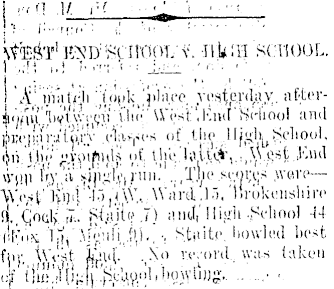 WEST END SCHOOL v. HIGH SCHOOL.
A match took place yesterday after-
noon between the West End School and
preparatory classes of the High School,
on the grounds of the latter. West End
won by a single run. The scores were—
West End 45 (W. Ward 15, Brokenshire
9, Cock 7, Staite 7) and High School 44
(Fox 15, 9). Staite bowled best
for West End. No record was taken
of the High School bowling.